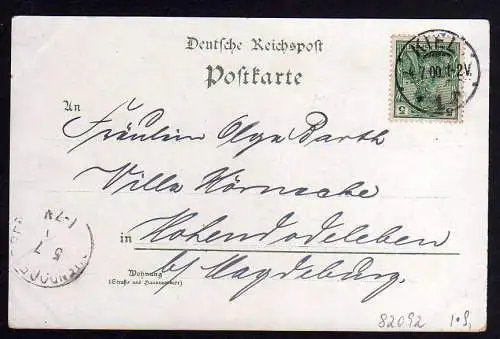 Deutsche Reichspost
Postkarte
KIEL
4.7.00.1-2V.
5
5
An
Fräulein Olga Barth
Villa Hörnecke
in Hohendodeleben
b/ Magdeburg.
Wohnung
(Straße und Hausnummer)
5
7
7-1N
82092